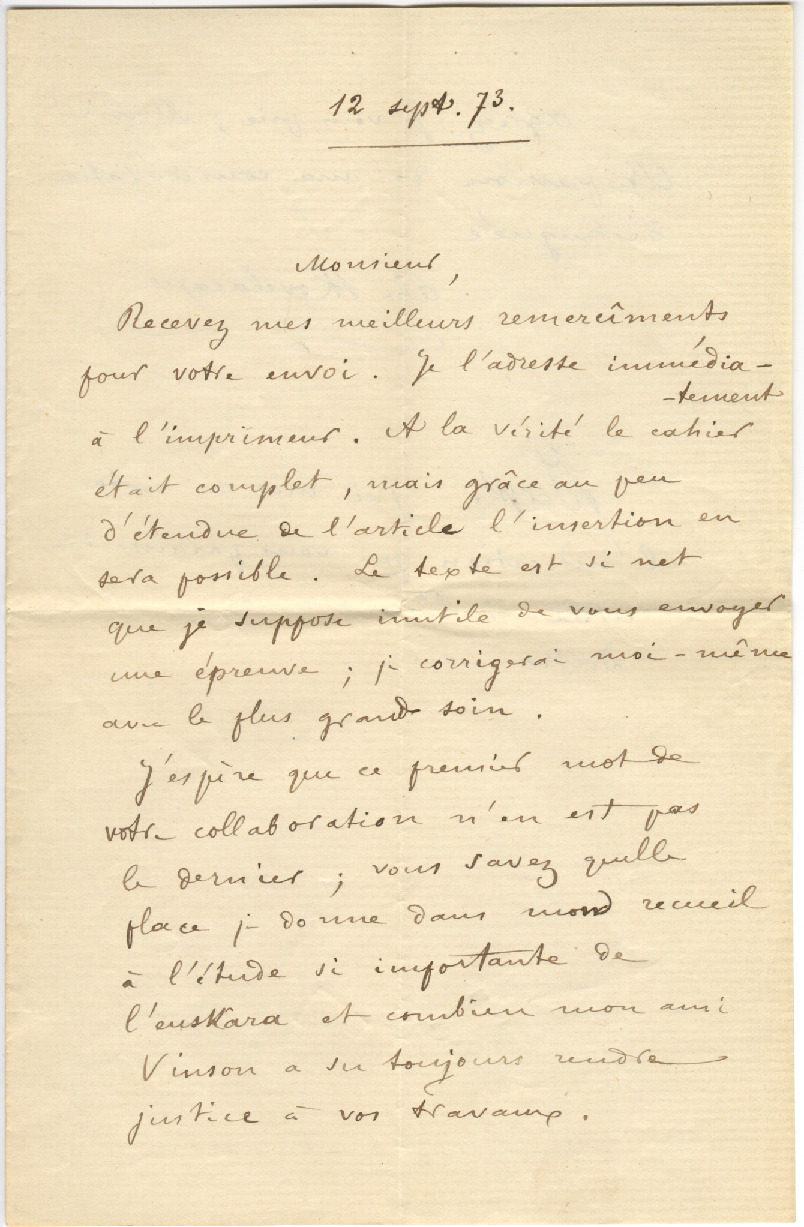 12 sept. 73.
Monsieur,
Recevez mes meilleurs remercîments
pour votre envoi. Je l'adresse immédia-
-tement
à l'imprimeur. A la vérité le cahier
était complet, mais grâce au peu
d'étendue de l'article l'insertion en
sera possible. Le texte est si net
que je suppose inutile de vous envoyer
une épreuve ; je corrigerai moi-même
avec le plus grand soin.
J'espère que ce premier mot de
votre collaboration n'en est pas
le dernier ; vous savez quelle
place je donne dans mon recueil
à l'étude si importante de
l'euskara et combien mon ami
Vinson a su toujours rendre
justice à vos travaux.